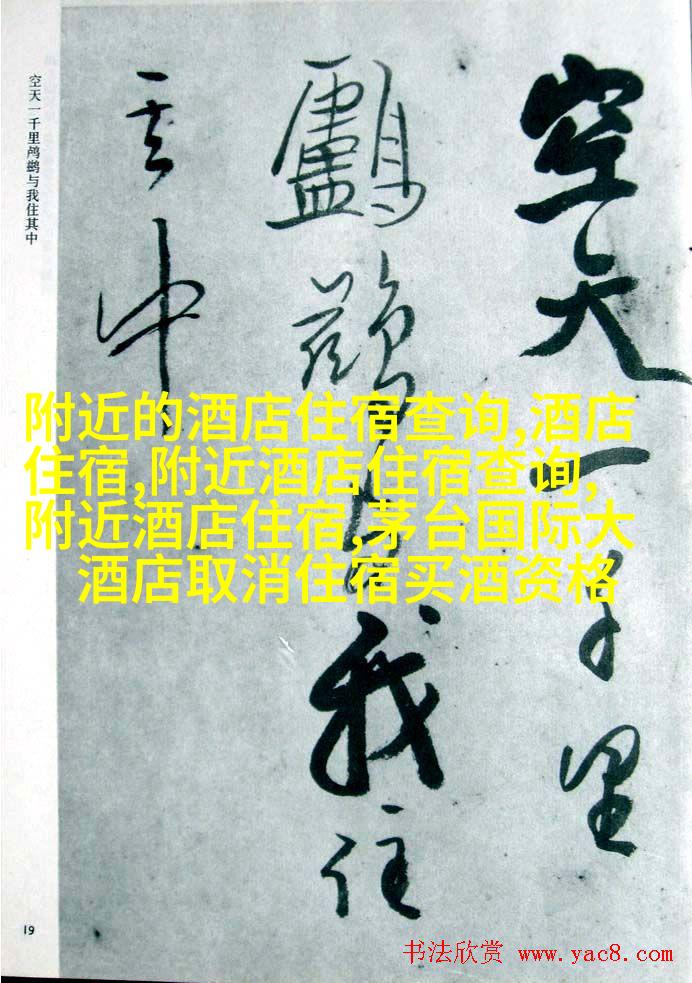 空天一千里
鸕鷀与我住
其中
空天一千里鸬鹚与我住其中
附近的酒店住宿查询,酒店
住宿,附近酒店住宿查询,
附近酒店住宿,茅台国际大
酒店取消住宿买酒资格
19
书法欣赏 www.yac8.com